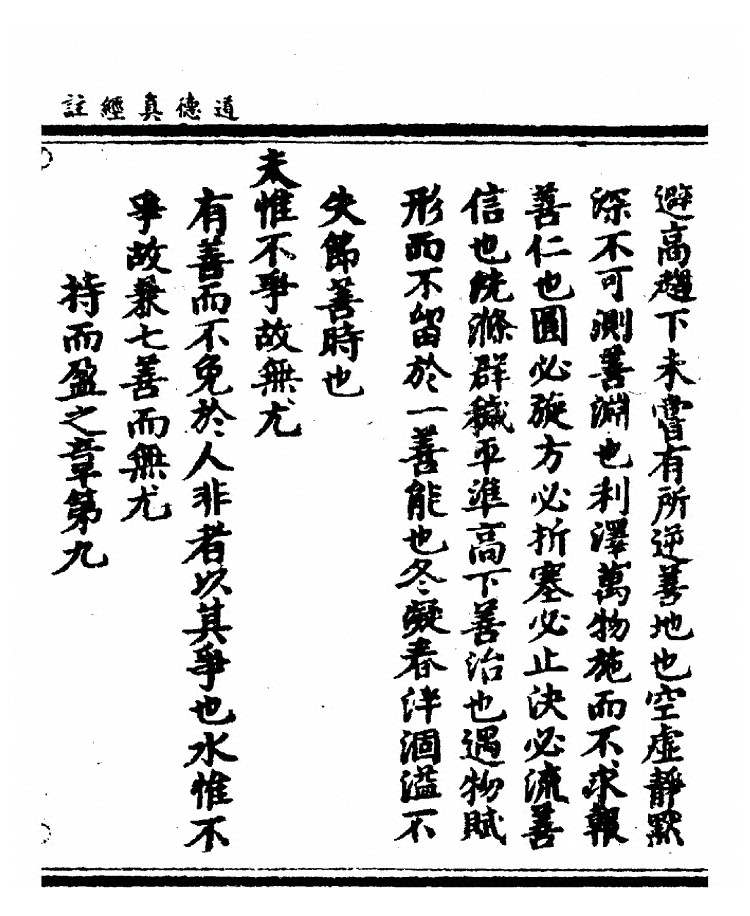 道德真經註
避高趨下未嘗有所逆善地也空虛靜默
深不可測善淵也利澤萬物施而不求報
善仁也圓必旋方必折塞必止決必流善
信也洗滌群穢平準高下善治也遇物賦
形而不留於一善能也冬凝春泮涸溢不
失節善時也
夫惟不爭故無尤
有善而不免於人非者以其爭也水惟不
爭故兼七善而無尤
持而盈之章第九